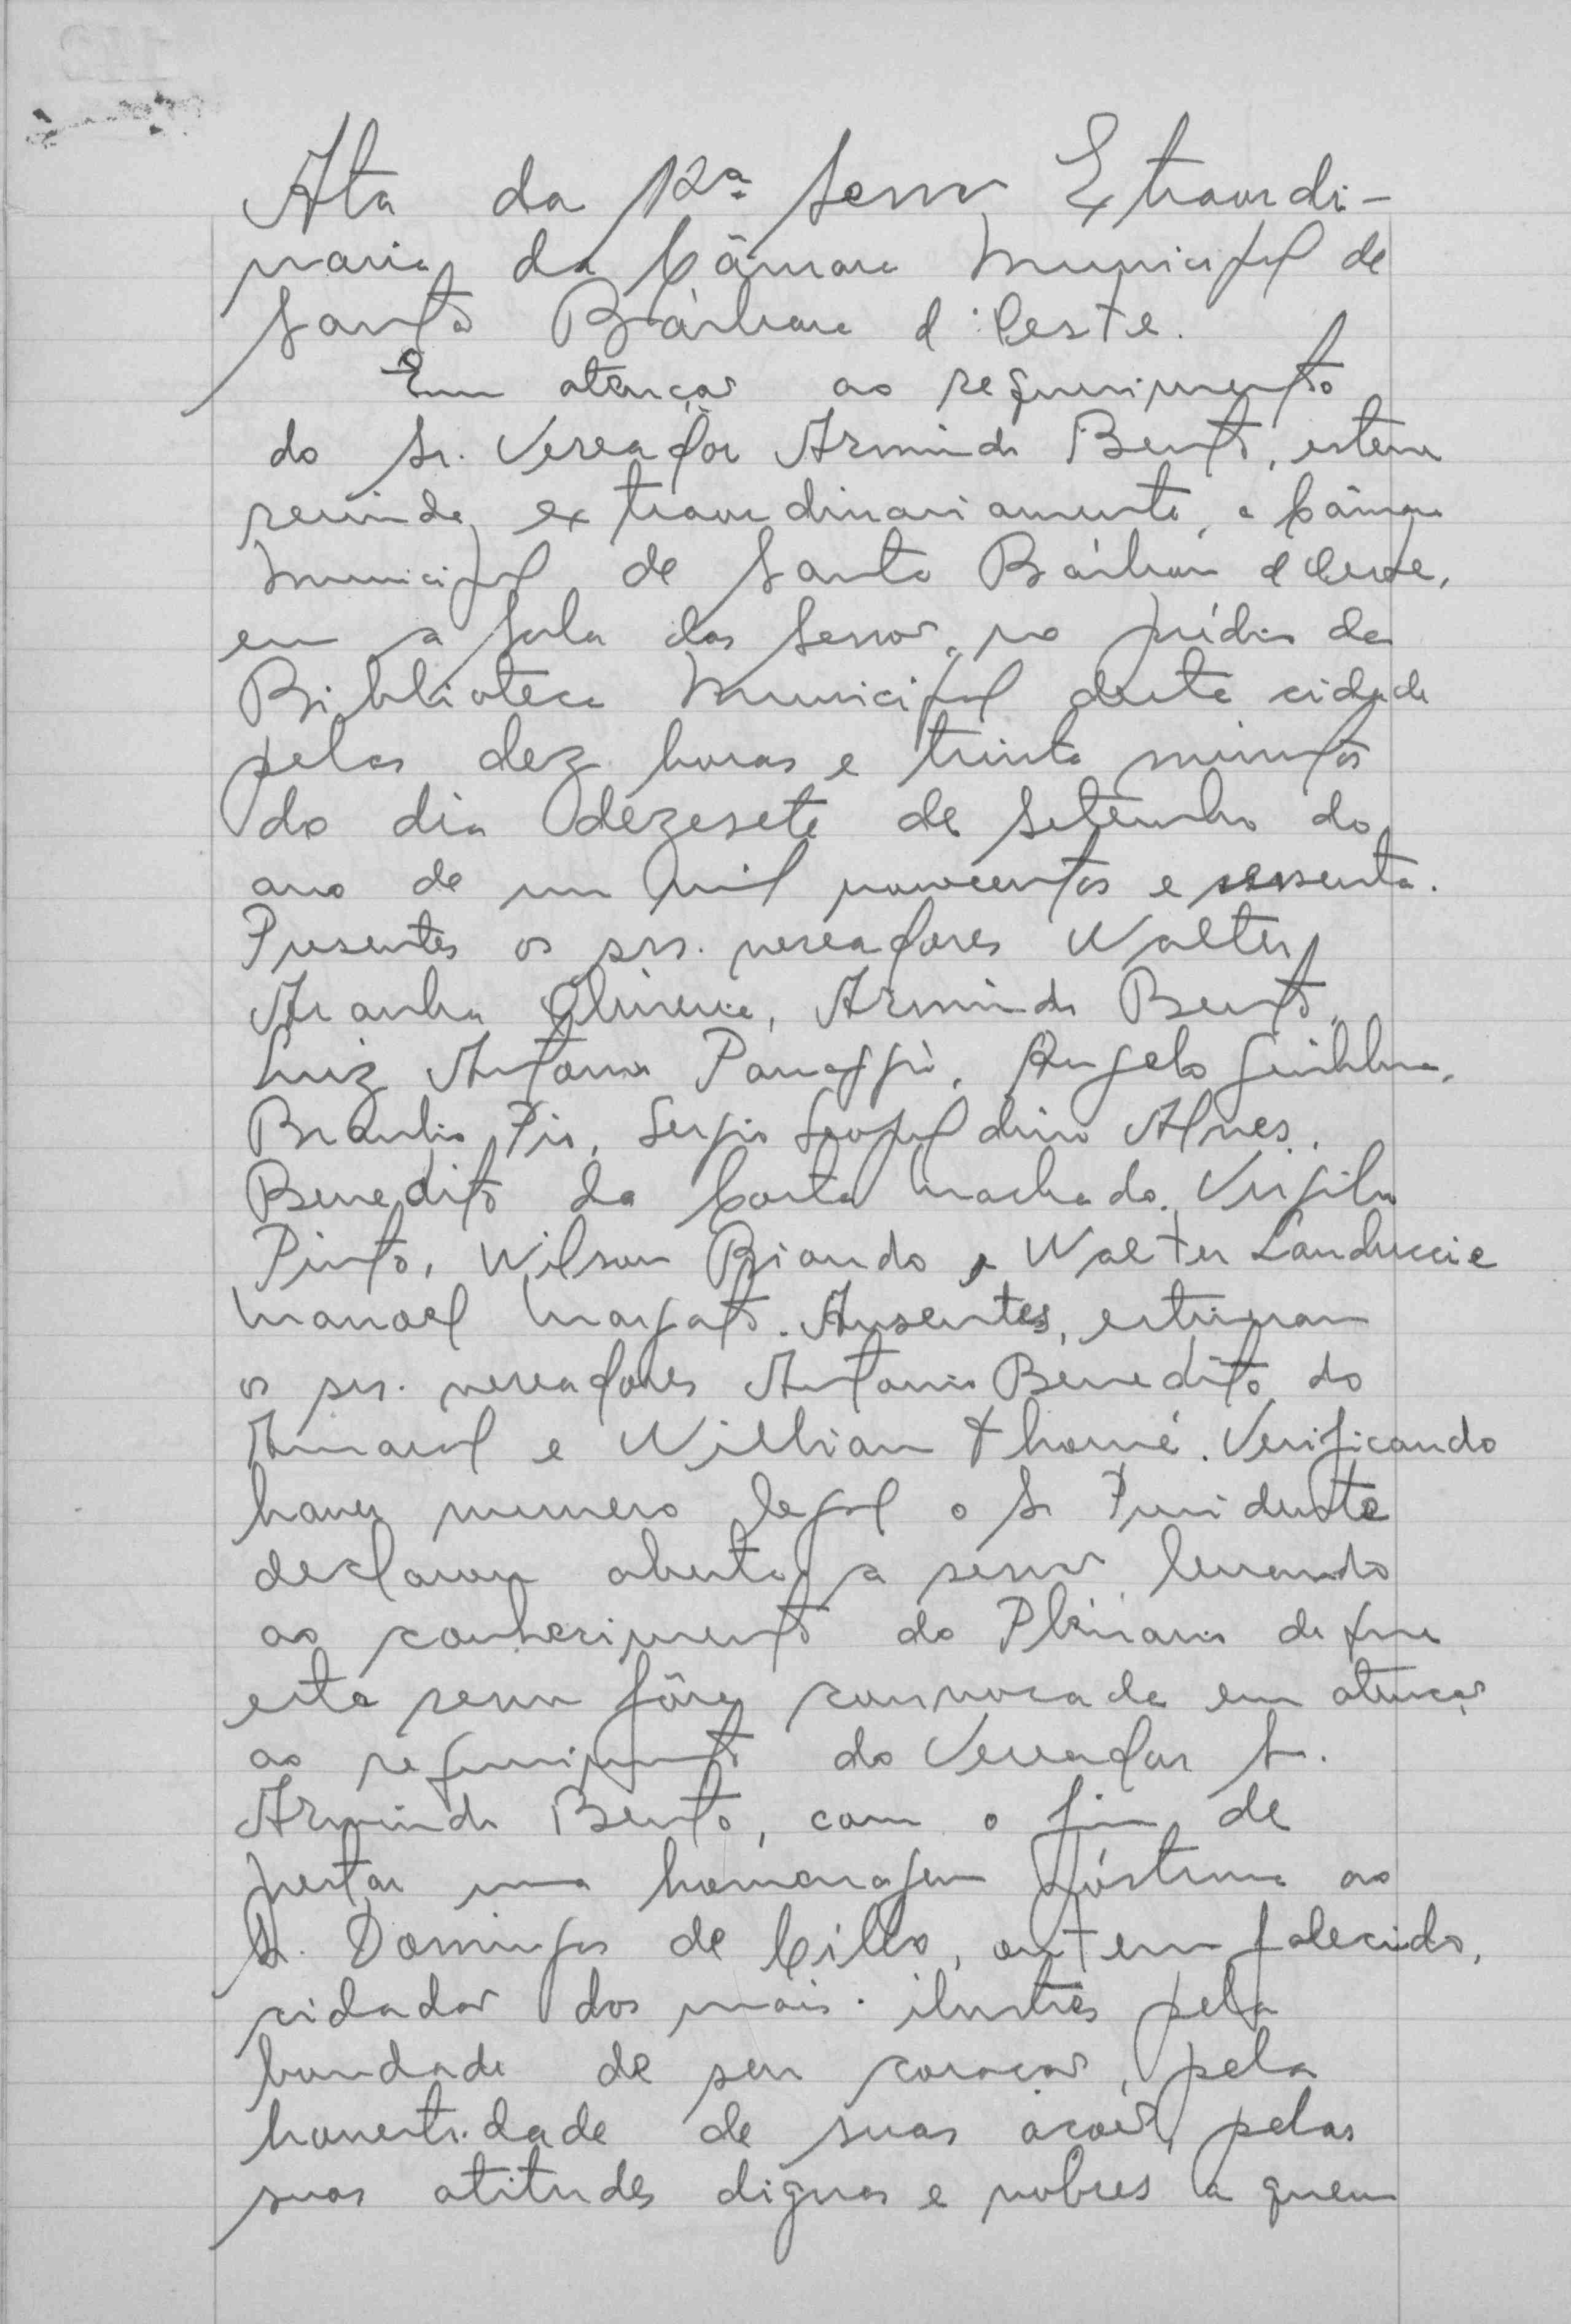 Ata da 12ª Sessão Extraordi-
naria da Câmara Municipal de
Santa Bárbara d'Oeste.
Em atenção ao requerimento
do Sr. Vereador Armindo Bento, esteve
reunida, extraordinariamente, a Câmara
Municipal de Santa Bárbara d'Oeste,
em a Sala das Sessões, no prédio da
Biblioteca Municipal desta cidade
pelas dez horas e trinta minutos
do dia dezesete de Setembro do
ano de um mil novecentos e sessenta.
Presentes os srs. vereadores Walter
Aranha Oliveira, Armindo Bento,
Luiz Antonio Panaggio, Angelo Giubbina,
Braulio Pio, Sergio Leopoldino Alves,
Benedito da Costa Machado, Virgilio
Pinto, Wilson Biondo, Walter Landucci e
Manoel Margato. Ausentes, estiveram
os srs. vereadores Antonio Benedito do
Amaral e Willian Thomé. Verificando
haver numero legal o Sr Presidente
declarou aberta a sessão levando
ao conhecimento do Plenario de que
esta sessão fôra convocada em atenção
ao requerimento do Vereador Sr.
Armindo Bento, com o fim de
prestar uma homenagem póstuma ao
Sr. Domingos de Cillo, ontem falecido,
cidadão dos mais ilustres pela
bondade de seu coração, pela
honestidade de suas ações, pelas
suas atitudes dignas e nobres a quem